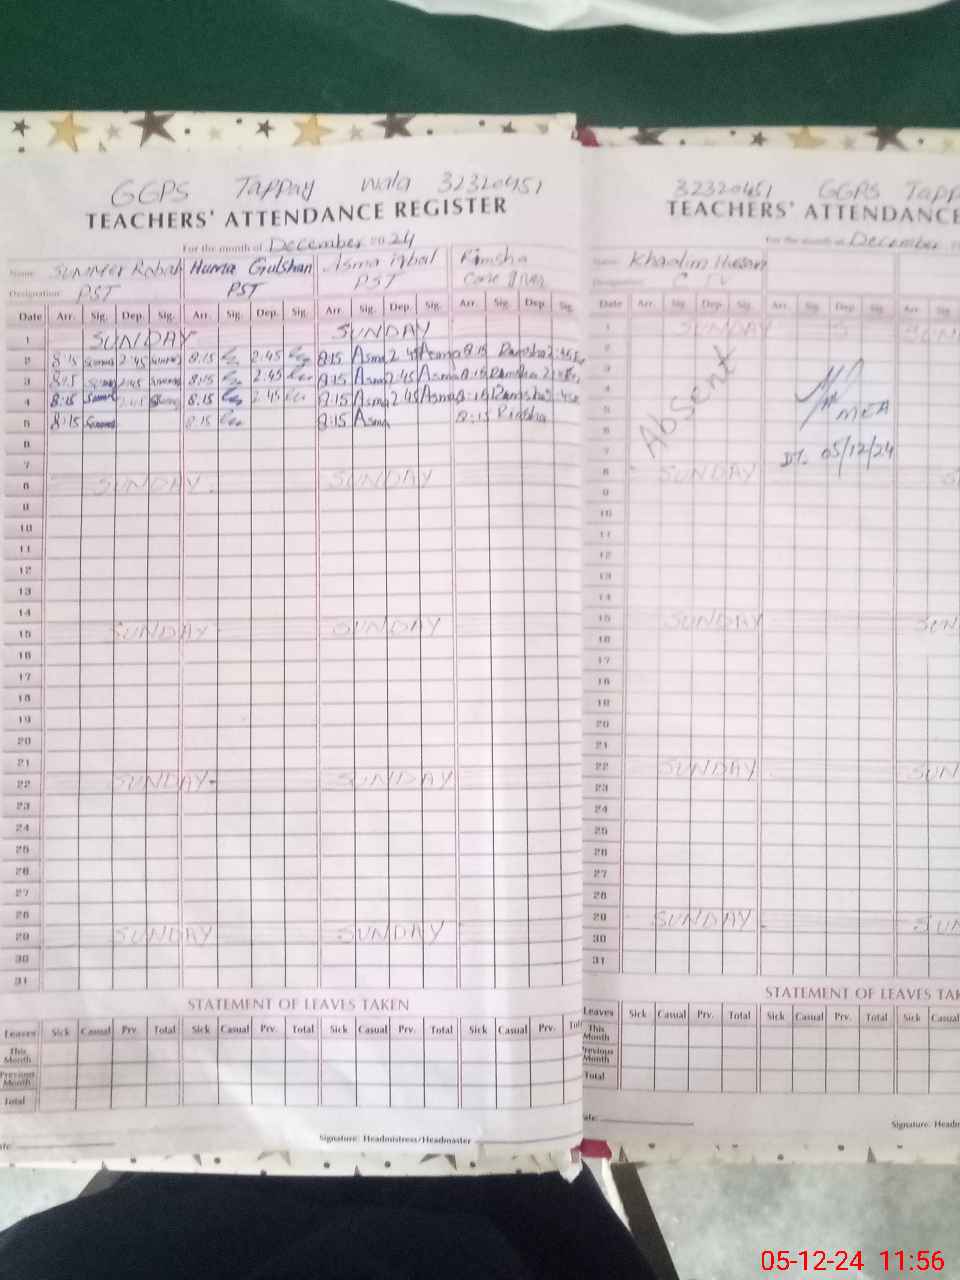 GGPS Tappay wala 32320451
TEACHERS' ATTENDANCE REGISTER
For the month of December 2024
Name Huma Gulshan Asma iqbal Rimsha
Designation PST PST PST
Date Arr. Sig. Dep. Sig. Arr. Sig. Dep. Sig. Arr. Sig. Dep. Sig. Arr. Sig. Dep. Sig.
1 SUNDAY SUNDAY
2 8:15 2:45 8:15 2:45 8:15 Asma 2:45 Asma 8:15 Ramsha
3 8:15 2:45 8:15 2:45 8:15 Asma 2:45 Asma 8:15 Ramsha
4 8:15 8:15 2:45 8:15 Asma 2:45 Asma 8:15 Ramsha
5 8:15 8:15 8:15 Asma 8:15
6
7
8 SUNDAY SUNDAY
9
10
11
12
13
14
15 SUNDAY SUNDAY
16
17
18
19
20
21
22 SUNDAY SUNDAY
23
24
25
26
27
28
29 SUNDAY SUNDAY
30
31
STATEMENT OF LEAVES TAKEN
Leaves Sick Casual Prv. Total Sick Casual Prv. Total Sick Casual Prv. Total Sick Casual Prv.
This Month
Previous Month
Total
Signature: Headmistress/Headmaster
32320451 GGPS Tapp
TEACHERS' ATTENDANCE
For the month of December
Name
Designation
Date Arr. Sig. Dep. Sig. Arr. Sig. Dep. Sig. Arr. Sig.
1 SUNDAY
2
3
4
5
6
7
Absent
MEA
Dt. 05/12/24
8 SUNDAY
9
10
11
12
13
14
15 SUNDAY SUN
16
17
18
19
20
21
22 SUNDAY SUN
23
24
25
26
27
28
29 SUNDAY SUN
30
31
STATEMENT OF LEAVES TAK
Leaves Sick Casual Prv. Total Sick Casual Prv. Total Sick Casual
This Month
Previous Month
Total
Signature: Headm
05-12-24 11:56